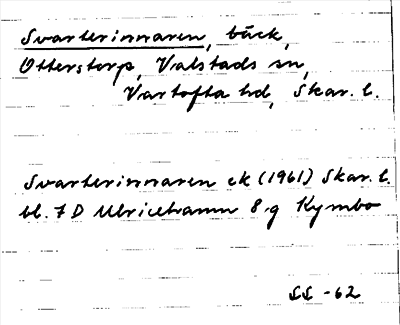 Svarterinnaren, bäck,
Otterstorp, Valstads sn,
Vartofta hd, Skar. l.
Svarterinnaren ek (1961) Skar. l.
bl. 7 D Ulricehamn 8.g Kymbo
SS -62